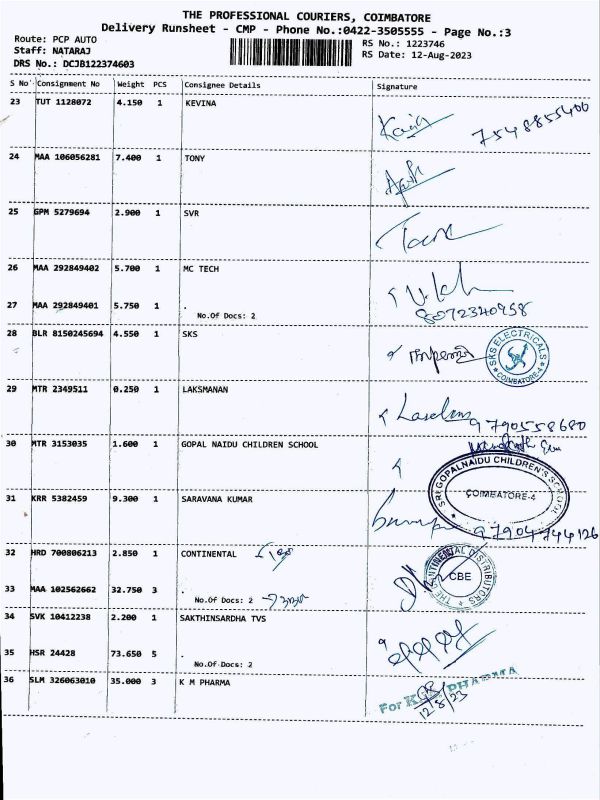 THE PROFESSIONAL COURIERS, COIMBATORE
Delivery Runsheet - CMP - Phone No.:0422-3505555 - Page No.:3
Route: PCP AUTO
RS No.: 1223746
Staff: NATARAJ
RS Date: 12-Aug-2023
DRS No.: DCJB122374603
S No Consignment No Weight PCS Consignee Details Signature
23 TUT 1128072 4.150 1 KEVINA
7548855400
24 MAA 106056281 7.400 1 TONY
25 GPM 5279694 2.900 1 SVR
26 MAA 292849402 5.700 1 MC TECH
27 MAA 292849401 5.750 1 .
No.Of Docs: 2
8072340958
28 BLR 8150245694 4.550 1 SKS
SKS ELECTRICALS
COIMBATORE-4
29 MTR 2349511 0.250 1 LAKSMANAN
9790558680
30 MTR 3153035 1.600 1 GOPAL NAIDU CHILDREN SCHOOL
SRI GOPALNAIDU CHILDREN'S SCHOOL
COIMBATORE-4
31 KRR 5382459 9.300 1 SARAVANA KUMAR
97904744126
32 HRD 700806213 2.850 1 CONTINENTAL
THE CONTINENTAL DISTRIBUTORS
CBE
33 MAA 102562662 32.750 3 .
No.Of Docs: 2
34 SVK 10412238 2.200 1 SAKTHINSARDHA TVS
35 HSR 24428 73.650 5 .
No.Of Docs: 2
36 SLM 326063010 35.000 3 K M PHARMA
For PHARMA
12/8/23